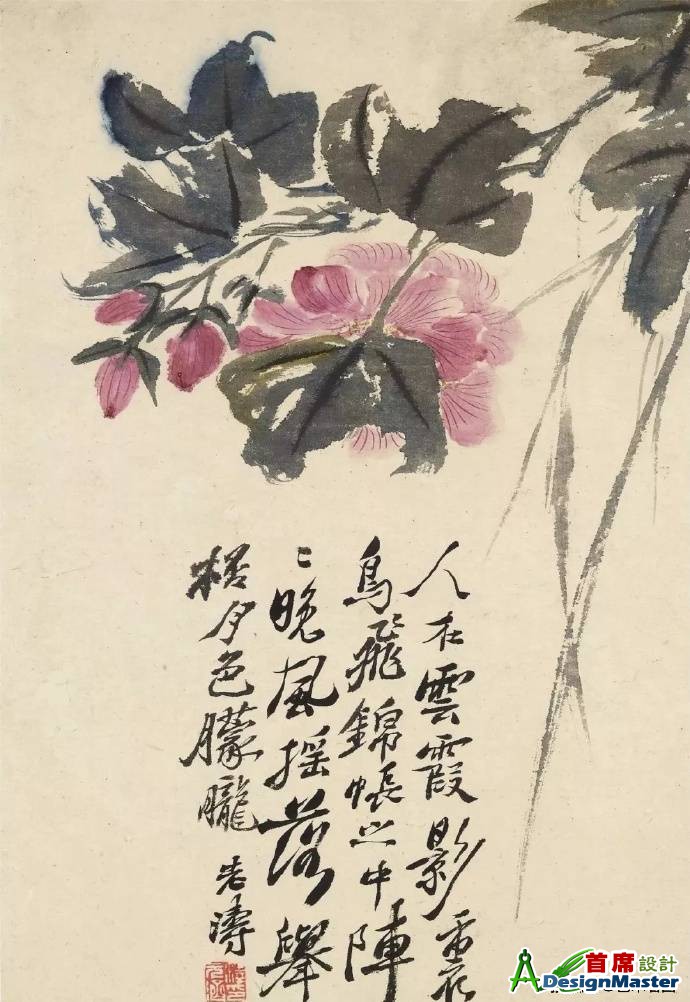 人在雲霞影裏
鳥飛錦帳之中陣
〻晚風搖落舉
夕色朦朧 老濤
首席設計
ADesignMaster